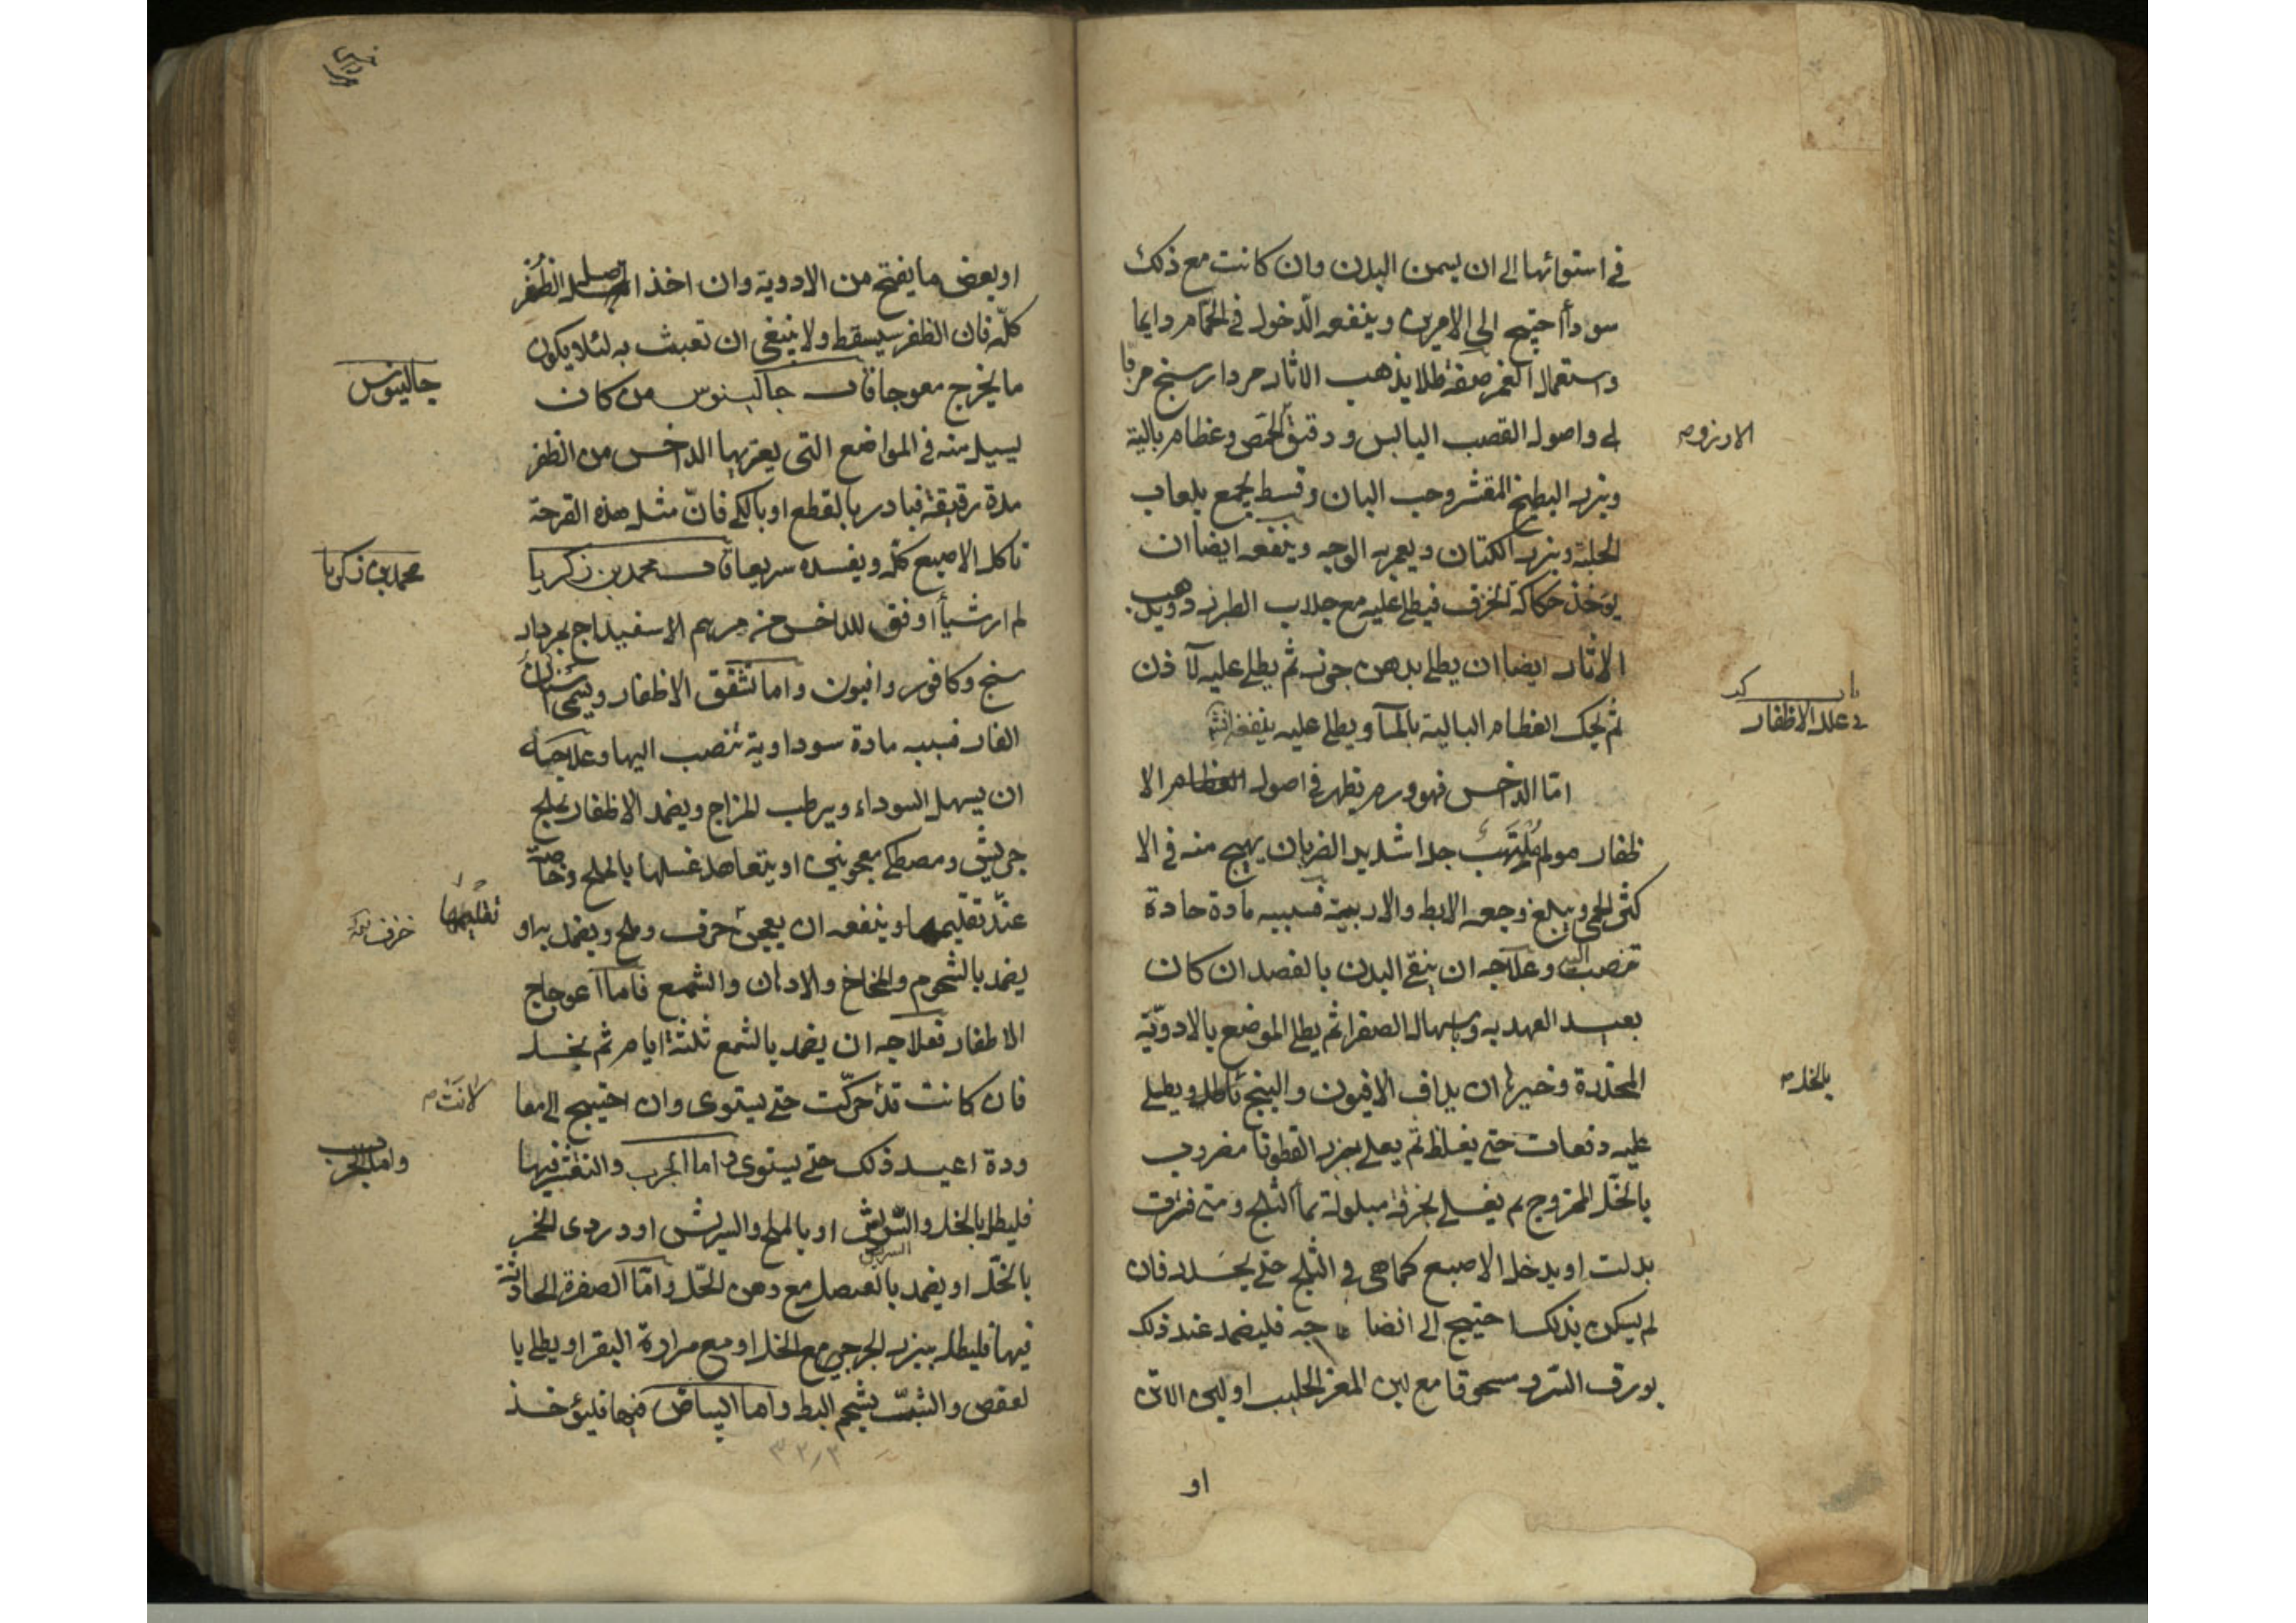 في استوائها الى ان يسمن البدن وان كانت مع ذلك
سودأ احتيج الى الامرين وينفعه الدّخول في الحمّام دايما
واستعمال الغمر صفة طلا يذهب الاثار مردارسنج مربا
لى واصول القصب اليابس ودقيق الحمّص وعظام بالية
الارز وم
وبزر البطيخ المقشر وحب البان وقسط يجمع بلعاب
الحلبة وبزر الكتان ويعمر به الوجه وينفعه ايضا ان
يوخذ حكاكة الخزف فيطلى عليه مع جلاب الطبرزد ويذهب
الاثار ايضا ان يطلى بدهن جوز ثم يطلى عليه لاذن
باب كد
في علل الاظفار
ثم يحك العظام البالية بالمآ ويطلى عليه ينفع
امّا الداخس فهو ورم يظهر في اصول العظام الا
ظفار مولم ملتهب جدا شديد الضربان يهيج منه في الا
كثر الحمى ويبلغ وجعه الابط والاربية فسببه مادة حادة
تنصب اليه وعلاجه ان ينقّى البدن بالفصد ان كان
بعيد العهد به وباسهال الصفرا ثم يطلى الموضع بالادويّة
المخدّرة وخيرها ان يداف الافيون والبنج بالخل ويطلى
بالخل م
عليه دفعات حتى يغلظ ثم يعلى ببزر القطونا مضروب
بالخّل الممزوج ثم يغطى بخرقة مبلولة بمآ الثلج ومتى فترت
بدلت او يدخل الاصبع كما هي في الثلج حتى يخدر فان
لم يسكن بذلك احتيج الى انضاجه فليضمد عند ذلك
بورق السّرو مسحوقا مع لبن المعز الحليب او لبن الاتن
او
او بعض ما يفتح من الادوية وان اخذ اصل الظفر
كلّه فان الظفر سيسقط ولا ينبغي ان تعبث به لئلا يكون
ما يخرج معوجا قال جالينوس من كان
جالينوس
يسيل منه في المواضع التي يعتريها الداخس من الظفر
مدة رقيقة فبادر بالقطع او بالكى فانّ مثل هذه القرحة
تاكل الاصبع كلّه ويفسده سريعا قال محمد بن زكريا
محمد بن زكريا
لم ار شيأ اوفق للداخس من مرهم الاسفيداج بمردار
سنج وكافور وافيون واما تشقق الاظفار ويسمى اسنان
الفار فسببه مادة سوداوية تنصب اليها وعلاجه
ان يسهل السوداء ويرطب المزاج ويضمد الاظفار بملح
جريش ومصطكى معجونين او يتعاهد غسلها بالملح وخاصة
عند تقليمها وينفعه ان يعجن حرف وملح ويضمد به او
تقليمها
يضمد بالشحوم والمخاخ والادهان والشمع فاما اعوجاج
الاظفار فعلاجه ان يضمد بالشمع ثلثة ايام ثم يحل
فان كانت قد تحركت حتى يستوى وان احتيج الى معا
لانت م
ودة اعيد ذلك حتى يستوى واما الجرب والتقشر فيها
واما الجرب
فليطل بالخل والسريش او بالملح والسريش او دردى الخمر
السريش
بالخّل او يضمد بالعنصل مع دهن الحّل وامّا الصفرة الحادثة
فيها فليطل ببزر الجرجير مع الخل او مع مرارة البقر او يطلى با
لعفص والشبّ بشحم البط واما البياض فيها فليؤخذ